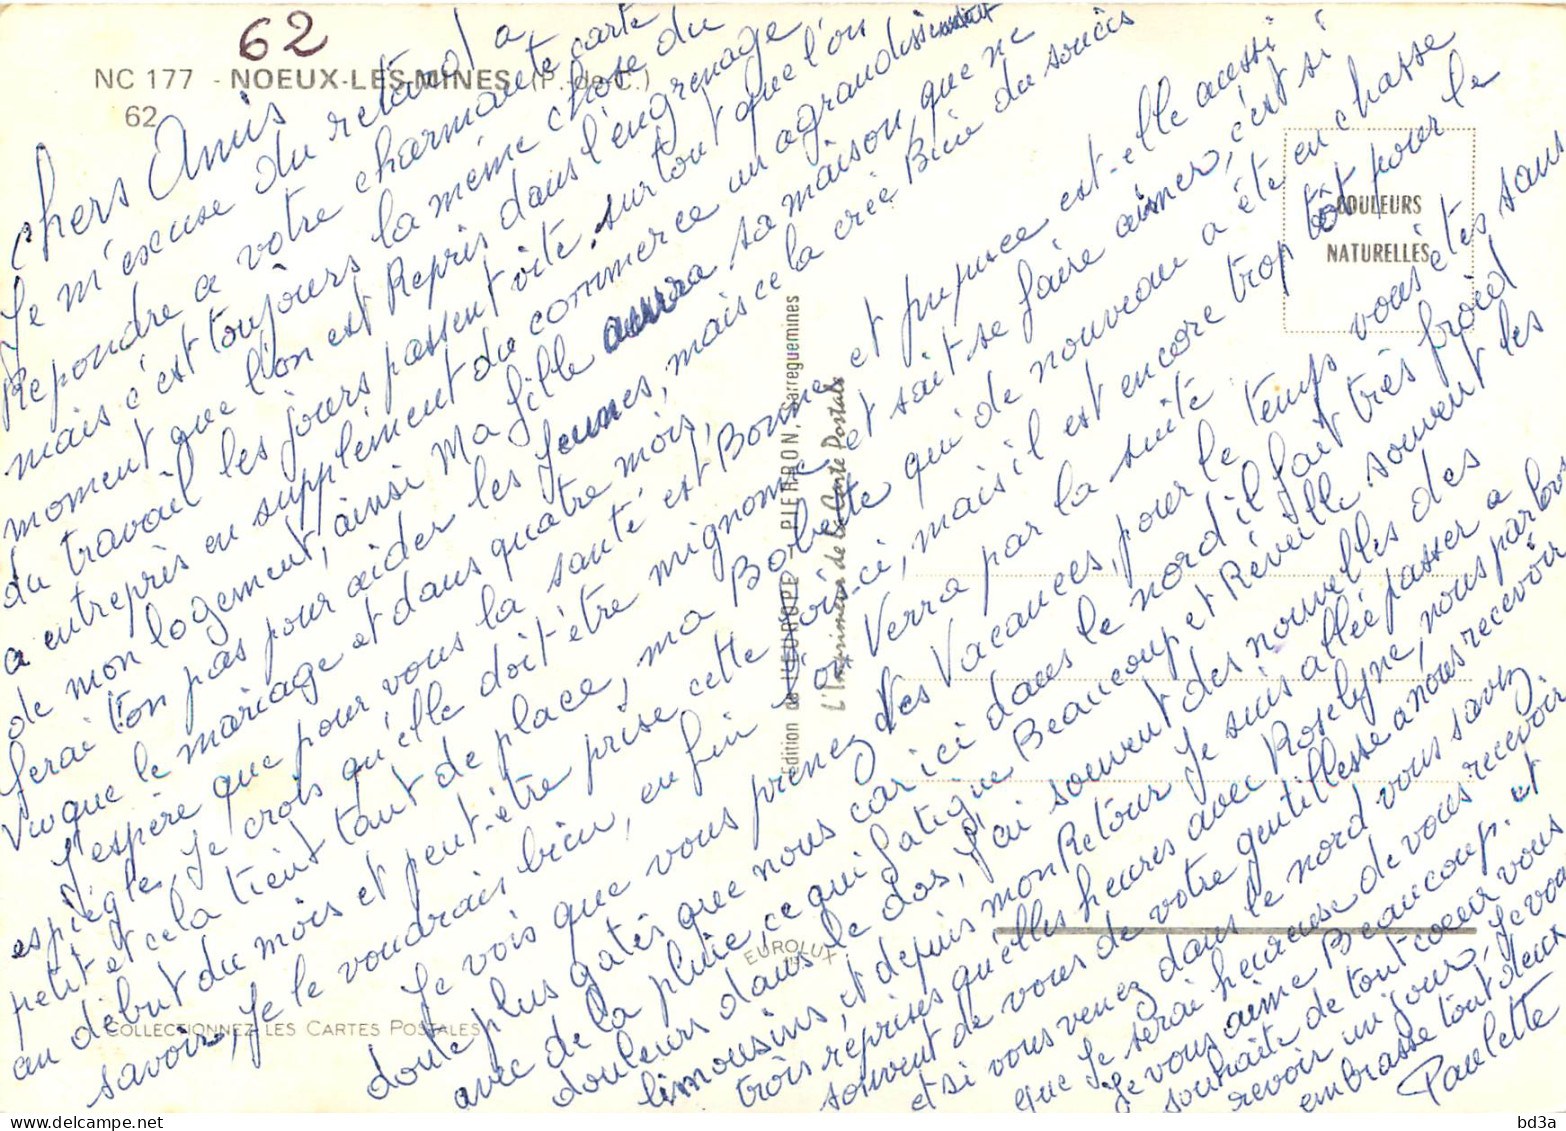 62
NC 177 - NOEUX-LES-MINES (P.-de-C.)
62
chers Amis
Je m'excuse du retard a
Repondre a votre charmante carte
mais c'est toujours la même chose du
moment que l'on est Repris dans l'engrenage
du travail les jours passent vite, surtout que l'on
a entrepris en supplément du commerce un agrandissement
de mon logement, ainsi ma fille aurra sa maison, que ne
ferait'on pas pour aider les Jeunes, mais ce la crée Bien du soucis
vu que le mariage et dans quatre mois,
J'espère que pour vous la santé est Bonne et prépuce est-elle aussi
espiègle, Je crois qu'elle doit être mignonne et sait se faire aimer, c'est si
petit et cela tient tant de place, ma Bobette qui de nouveau a été en chasse
au début du mois et peut-être prise cette fois-ci, mais il est encore trop tôt pour le
savoir, Je le voudrais bien, en fin on Verra par la suite
Je vois que vous prenez des Vacances, pour le temps vous êtes sans
doute plus gatés que nous car ici dans le nord il fait très froid
avec de la pluie, ce qui fatigue Beaucoup et Réveille souvent les
douleurs dans le dos, J'ai souvent des nouvelles des
limousins, et depuis mon Retour Je suis allée passer a
trois reprises quelles heures avec Roselyne, nous parlons
souvent de vous de votre gentillesse a nous recevoir
et si vous venez dans le nord vous savez
que Je serai heureuse de vous recevoir
Je vous aime Beaucoup. et
souhaite de tout coeur vous
revoir un jour, Je vous
embrasse tout deux
Paulette
COULEURS
NATURELLES
édition de l'EUROPE - PIERRON, Sarreguemines
L'Imprimerie de la Carte Postale
EUROLUX
COLLECTIONNEZ LES CARTES POSTALES
bd3a